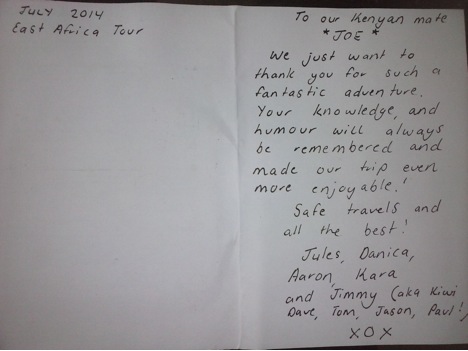 JULY 2014
East Africa Tour
To our Kenyan mate
* JOE *
We just want to
thank you for such a
fantastic adventure.
Your knowledge, and
humour will always
be remembered and
made our trip even
more enjoyable!
Safe travels and
all the best!
Jules, Danica,
Aaron, Kara
and Jimmy (aka Kiwi,
Dave, Tom, Jason, Paul!)
XOX